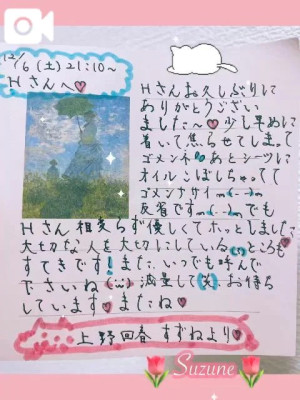 12/6(土)21:10〜
Hさんへ♥
Hさんお久しぶりに
ありがとうござい
ました〜♥少し早めに
着いて焦らせてしまって
ゴメンネ あとシーツに
オイルこぼしちゃって
ゴメンナサイm(._.)m
反省ですm(._.)mでも
Hさん相変らず優しくてホッとしました
大切な人を大切にしている(..)ところも
すてきです!また、いつでも呼んで
下さいね(...)減量して(笑)お待ち
しています♥またね♥
上野回春 すずねより♥
Suzune